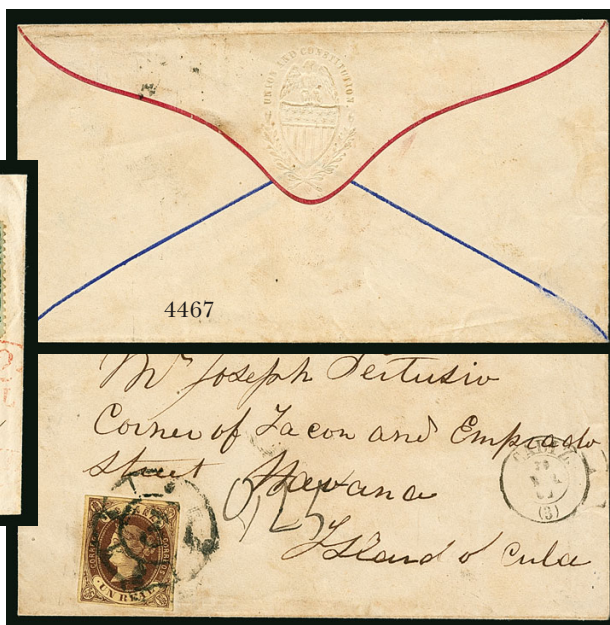 UNION AND CONSTITUTION
4467
Mr Joseph Pertusio
Corner of Tacon and Emprado
Street Havana
Island of Cuba
CADIZ
(3)
CORREOS
UN REAL